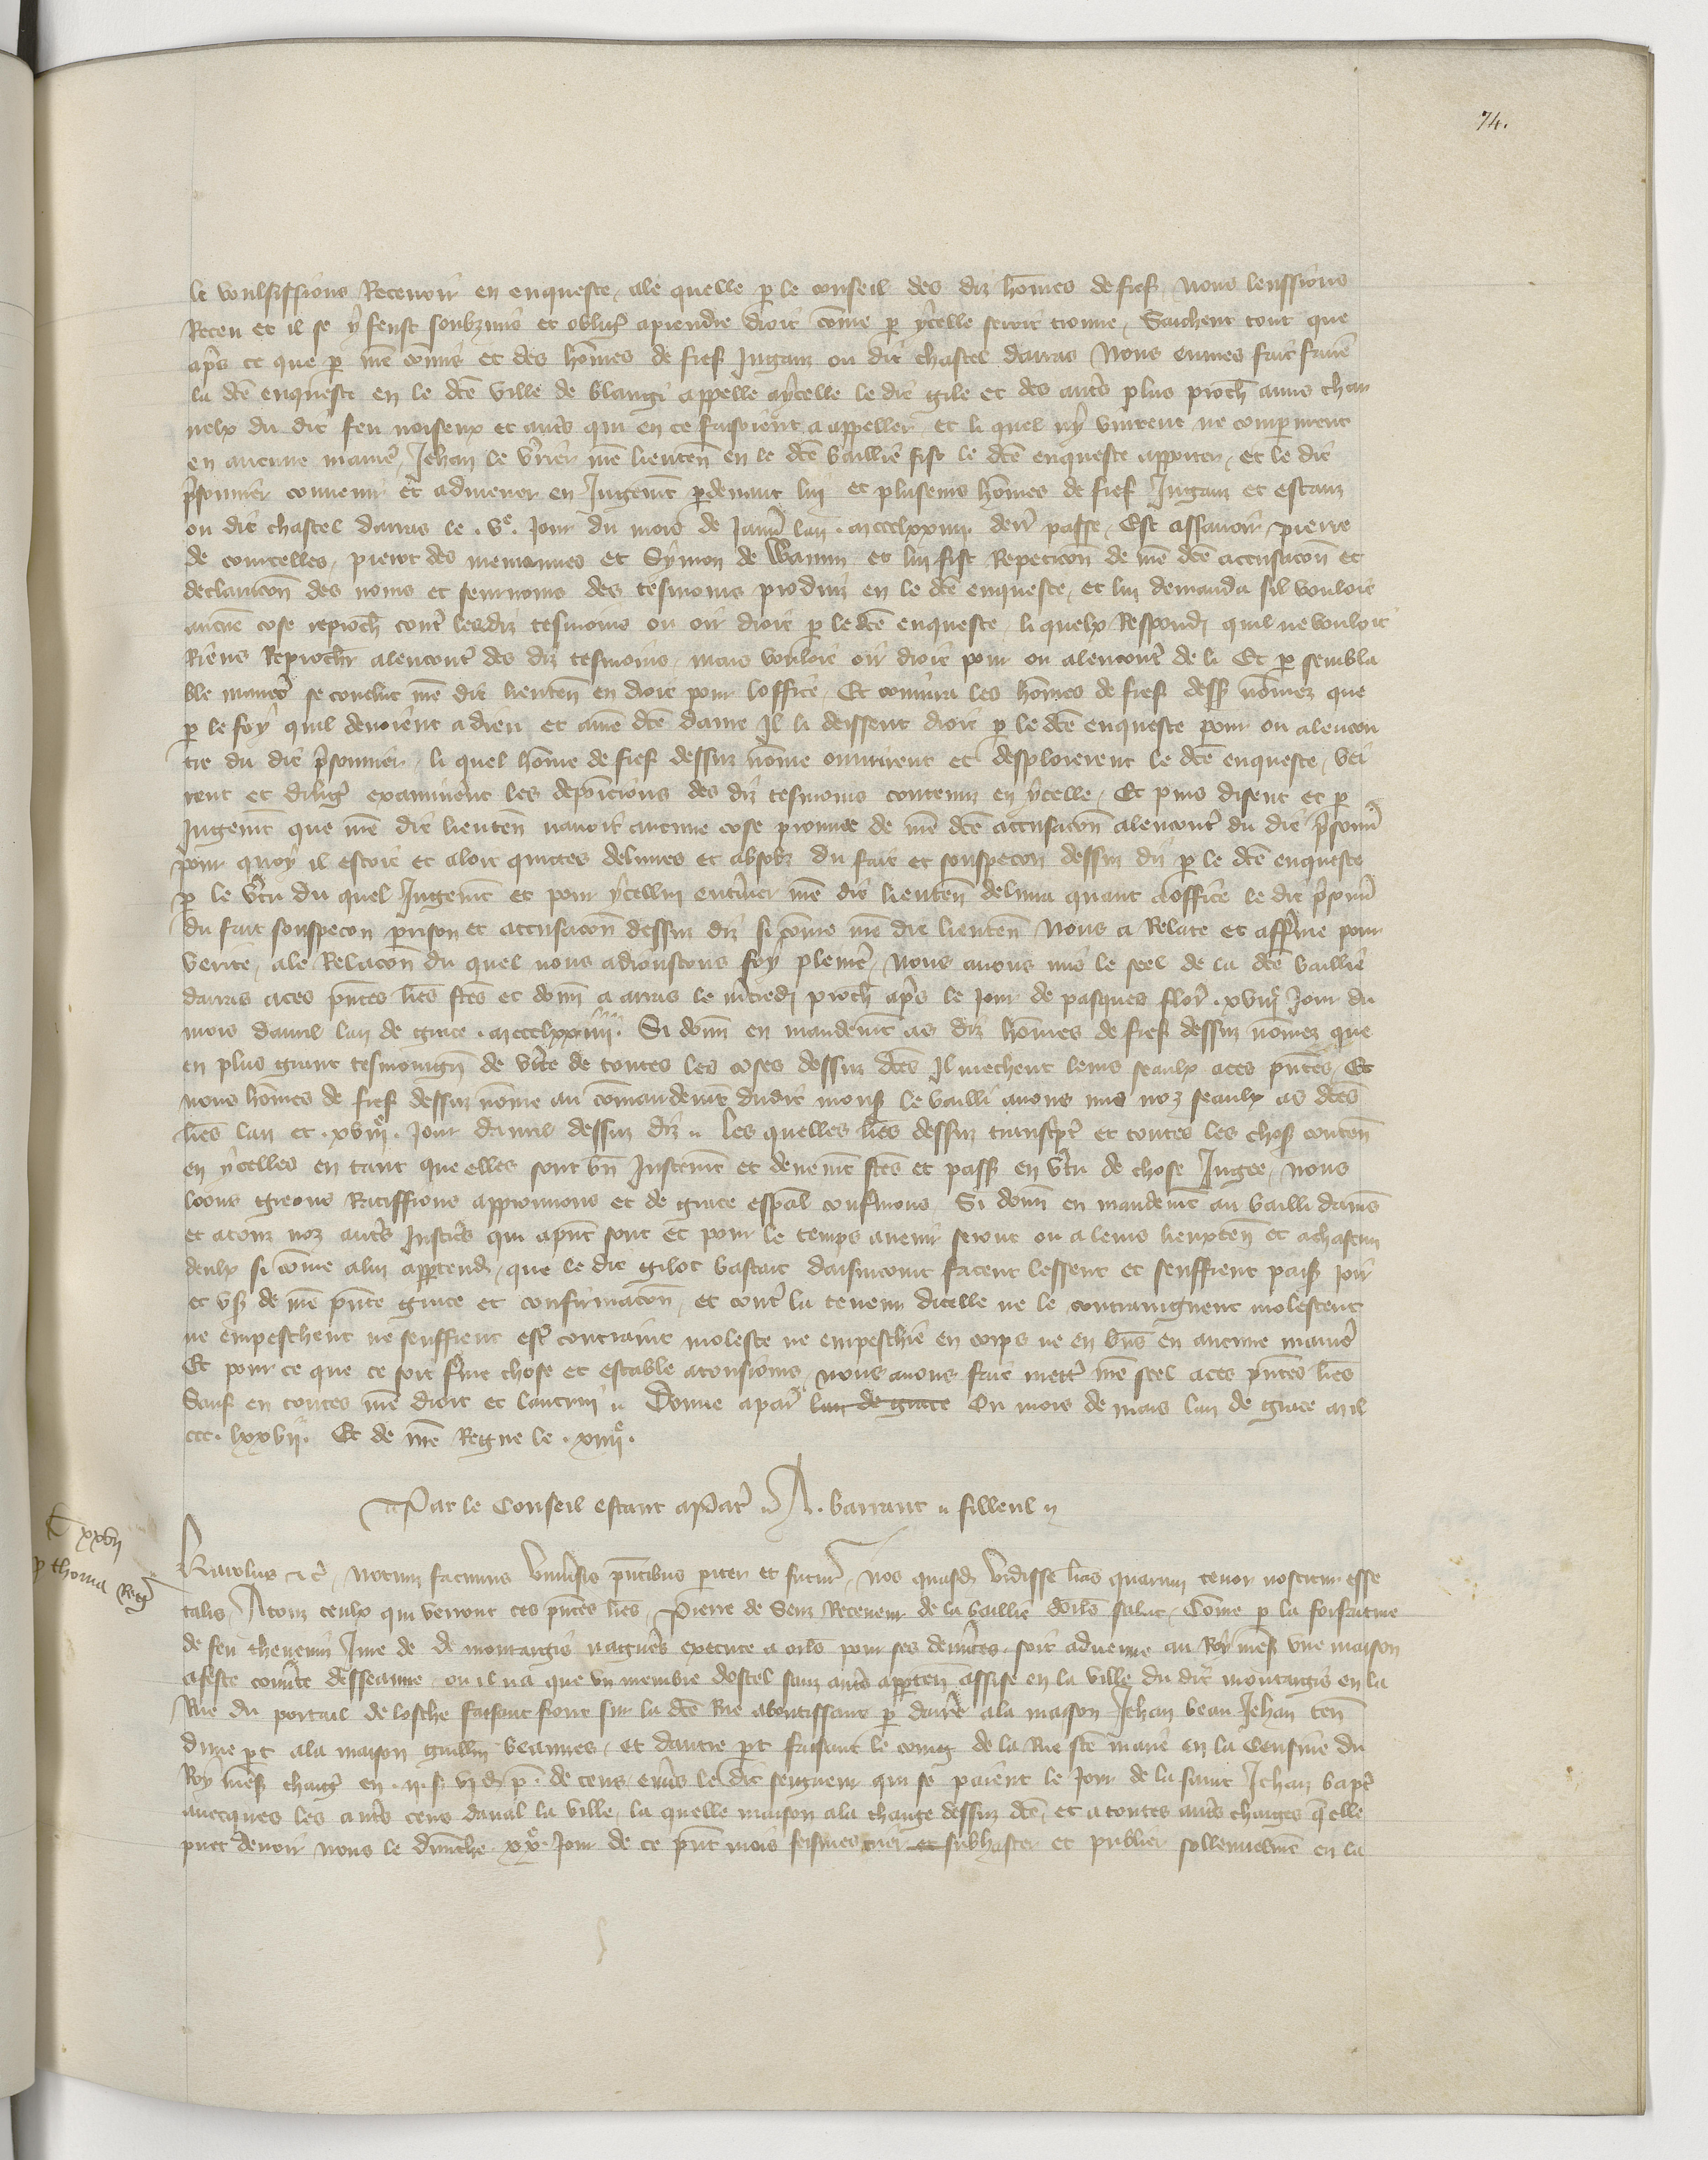 74.
le voulsissions Recevoir en enqueste, ale quelle p le conseil des diz hommes de fief, Nous leussions
Receu et il se y feust soubzmis et obligé a prendre droit come p ycelle seroit trouue, Saichent tout que
apres ce que p nre comis et des homes de fief Jugans ou dit chastel darras Nous eumes fait faire
la dce enqueste en le dce ville de blangi appelle aycelle le dit gile et des autres plus proch amis char
nelx du dit feu noiseux et autres qui en ce faisoient a appeller et li quel ny vinrent ne comparurent
en aucune maniere, Jehan le nre lieuten en le dce baillie fist le dce enqueste apporter, et le dit
prisonnier convenir et admener en Jugement pdevant lui et plusieurs homes de fief Jugans et estans
ou dit chastel darras le .ve. Jour du mois de Janvier lan . mccclxxiiii. derr passe, Est assavoir, pierre
de courcelles, pierot des et Symon de Wanin et lui fist Repeticon de nre dce accusacon et
declaracon des noms et seurnoms des tesmoins produiz en le dce enqueste, et lui demanda sil vouloit
aucune cose reproch contre lesdiz tesmoins ou oir droit p le dce enqueste, li quelx Respondi quil ne vouloit
Riens Reprocher alencontre des diz tesmoins, mais vouloit oir droit pour ou alencontre de li Et p sembla
ble maniere se conclut nre dit lieuten en droit pour loffice, Et coniura les homes de fief dess nomez que
p le foy quil devoient a dieu et a nre dce dame Il li deissent droit p le dce enqueste pour ou alencon
tre du dit prisonnier, li quel home de fief dessuz nome ouvrirent et desploierent le dce enqueste, vei
rent et dilig examinerent les deposicions des diz tesmoins contenuz en ycelle, Et puis disent et p
Jugement que nre dit lieuten navoit aucune cose prouvee de nre dce accusacon alencontre du dit prisonnier
pour quoy il estoit et aloit quittes delivres et absolz du fait et souspecon dessuz diz p le dce enqueste
p le vertu du quel Jugement et pour ycellui enteriner nre dit lieuten delivra quant a loffice le dit prisonnier
du fait souspecon prison et accusacon dessuz diz si come nre dit lieuten Nous a Relate et afferme pour
verite, ale Relacon du quel nous adioustons foy pleniere, Nous avons mis le seel de la dce baillie
darras a ces pntes lres fces et donn a arras le mcredi proch apres le Jour de pasques flories .xviiie Jour du
mois davril lan de grace . mccclxxiiii. Si donn en mandement as diz homes de fief dessuz nomez que
en plus grant tesmoingn de verite de toutes les coses dessuz dces Il mechent leurs seaulx a ces pntes, Et
nous homes de fief dessuz nome au comandement dudit mons le bailli avons mis noz seaulx as dces
lres lan et .xviiie. Jour davril dessuz diz. Les quelles lres dessuz transcpt et toutes les choses conten
en ycelles en tant que elles sont bn Justement et deuement fces et pass en vertu de chose Jugee, nous
loons greons Ratiffions approuvons et de grace espal confermons Si donn en mandement au bailli damiens
et a touz noz autres Justiciers qui a pnt sont et pour le temps avenir seront ou a leurs lieuxten et a chascun
deulx si come a lui appartendra, que le dit gilot facent lessent et seuffrent paisib Joir
et user de nre pnte grace et confirmacon, et contre la teneur dicelle ne le contraingnent molestent
ne empeschent ne seuffrent estre contraint moleste ne empeschie en corps ne en biens en aucune maniere
Et pour ce que ce soit ferme chose et estable a tousiours nous avons fait mettre nre seel a ces pntes lres
Sauf en toutes nre droit et lautrui. Donne a paris lan de grace Ou mois de mars lan de grace mil
ccc. lxxvii. Et de nre Regne le . xiiiie.
Par le Conseil estant a Paris. A. barrant. filleul
C xxvii
p thoma
Karolus &c. Notum facimus Universis pntibus pariter et futuris, Nos quasd Vidisse lras quarum tenor noscitur esse
talis, A touz ceulx qui verront ces pntes lres, Pierre de Senz Receveur de la baillie dorls salut, Come p la forfaiture
de feu thevenin de de montargis nagueres execute a orls pour ses demerites, soit advenue au Roy nre s une maison
a feste couverte desseaune, ou il na que un membre dostel sanz autres apparten assise en la ville du dit montargis en la
Rue du portail de losche faisant front sur la dce Rue aboutissant p darrere ala maison Jehan beau Jehan ten
dune pt ala maison guillm beannes, et dautre pt faisant le coing de la Rue ste marie en la Censive du
Roy nre s chargee en .ii. s vi d p. de cens envers le dit seigneur qui se paient le Jour de la saint Jehan bapte
avecques les autres cens daval la ville, la quelle maison ala charge dessuz dce, et a toutes autres charges que elle
puet devoir nous le dimenche .xxe. Jour de ce pnt mois feismes crier et subhaster et publier sollennelment en la